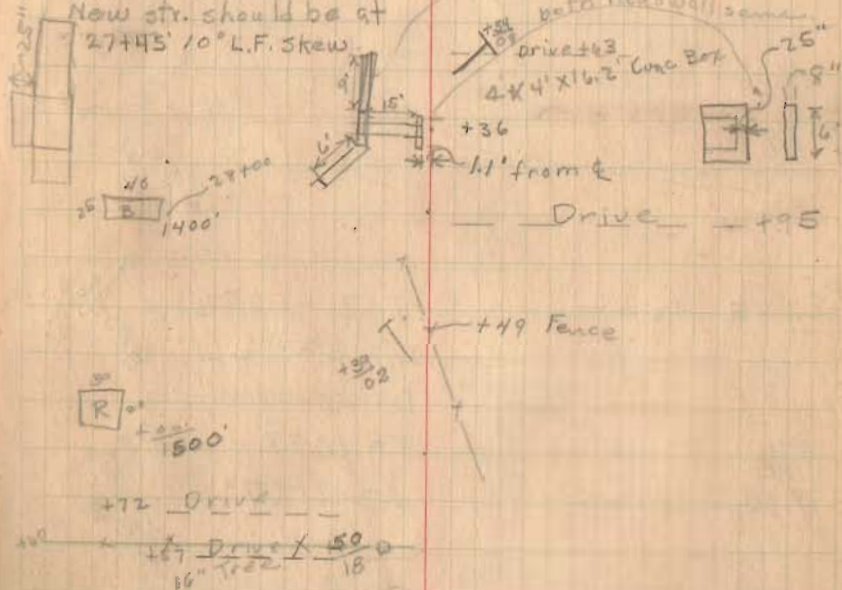 New str. should be at
27+45' 10° L.F. Skew
25"
both headwalls same
+54
Drive +43
4 x 4' x 16.2' Conc Box
25"
8"
9'
15'
+36
6'
6'
1.1' from ℄
40
28+00
25
B
1400'
Drive +95
+49 Fence
+39
02
R
1500'
+72 Drive
+67 Drive
50
18
16" Tree